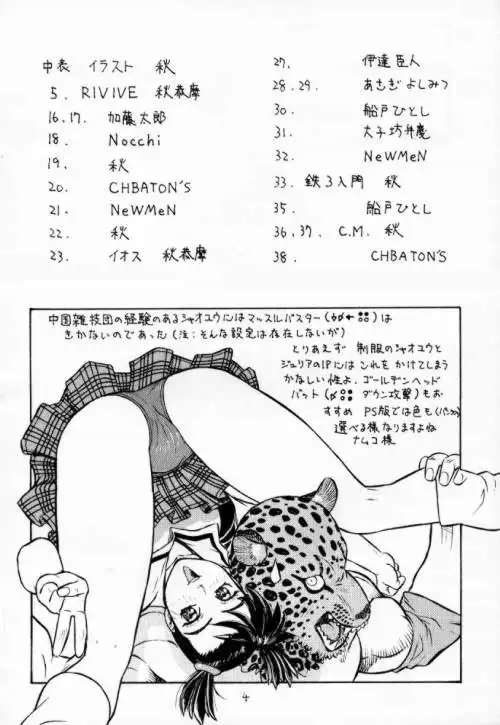 中表 イラスト 秋
5. RIVIVE 秋恭摩
16,17. 加藤太郎
18. Nocchi
19. 秋
20. CHBATON'S
21. NeWMeN
22. 秋
23. イオス 秋恭摩
27. 伊達臣人
28.29. あさぎよしみつ
30. 船戸ひとし
31. 太子坊弁慶
32. NeWMeN
33. 鉄3入門 秋
35. 船戸ひとし
36,37. C.M. 秋
38. CHBATON'S
中国雑技団の経験のあるシャオユウにはマッスルバスター()は
きかないのであった(注:そんな設定は存在しないが)
とりあえず 制服のシャオユウと
ジュリアの1Pには これを かけてしまう
かなしい性よ.ゴールデンヘッド
バット( ダウン攻撃)もお
すすめ PS版では色も(パンツの)
選べる様なりますよね
ナムコ様
4